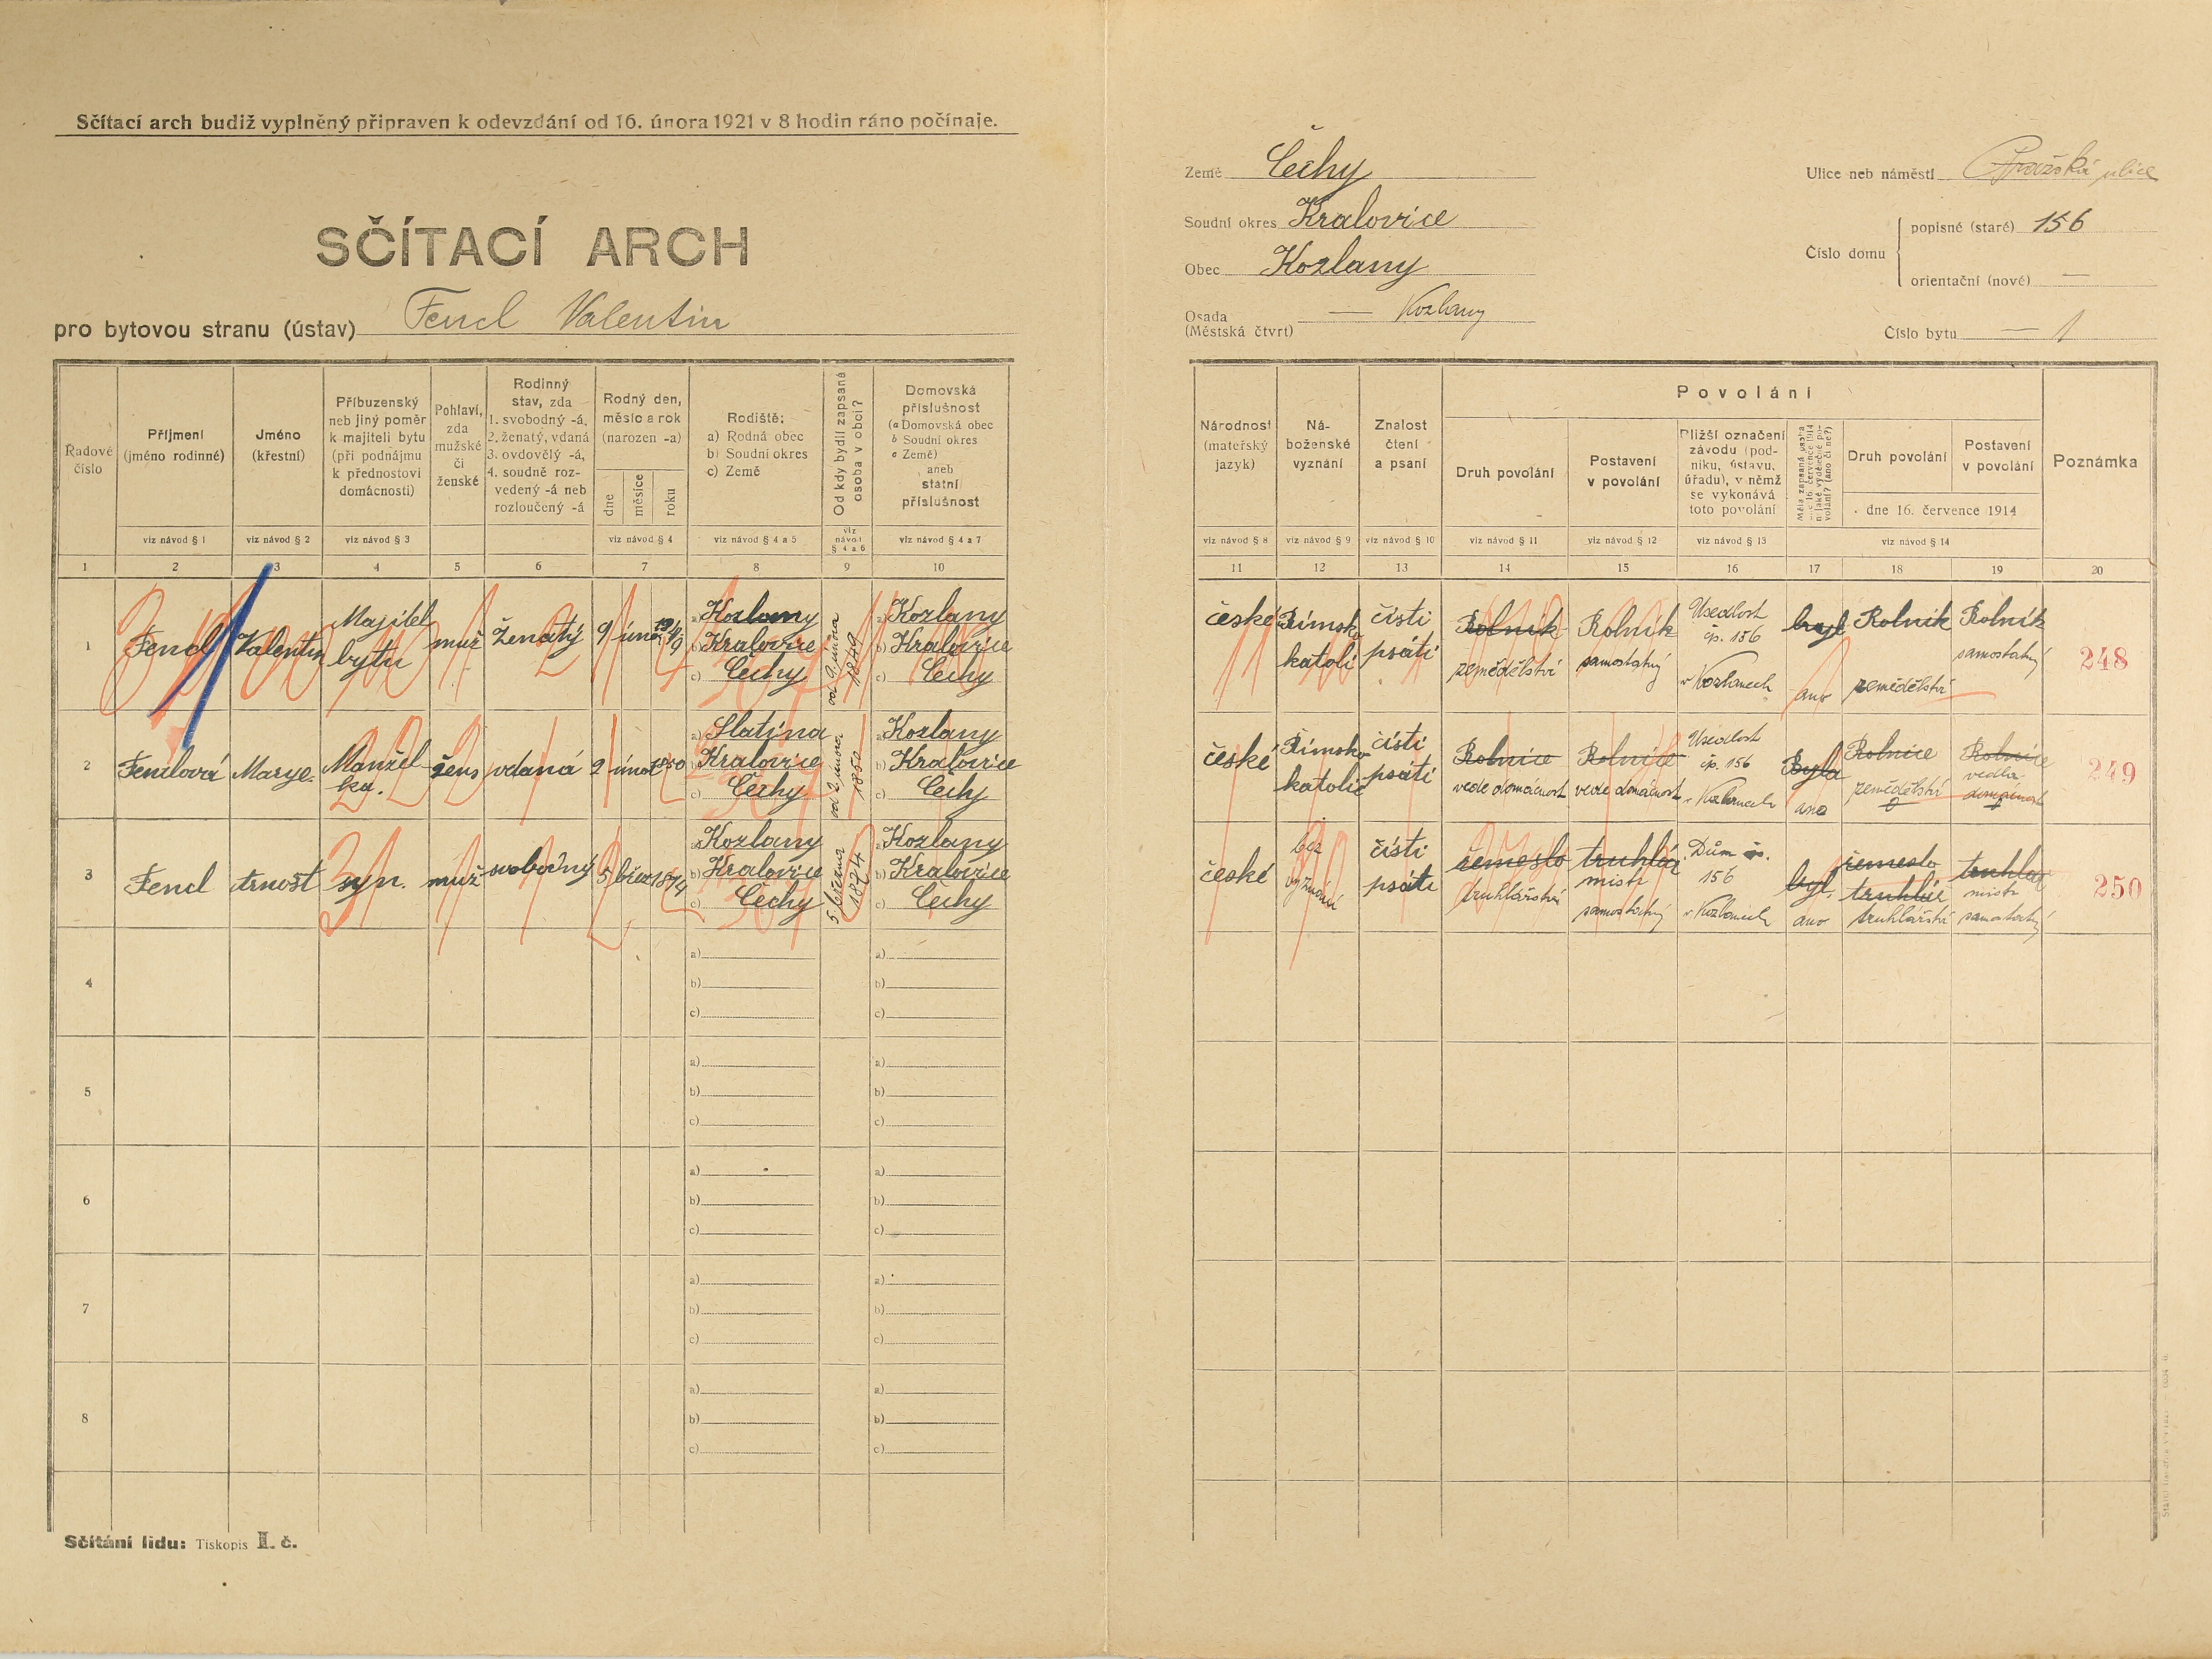 Sčítací arch budiž vyplněný připraven k odevzdání od 16. února 1921 v 8 hodin ráno počínaje.
SČÍTACÍ ARCH
pro bytovou stranu (ústav) Fencl Valentin
Země Čechy
Soudní okres Kralovice
Obec Kozlany
Osada (Městská čtvrt) — Kozlany
Ulice neb náměstí Pražská ulice
Číslo domu
popisné (staré) 156
orientační (nové) —
Číslo bytu — 1
Řadové číslo
Příjmení (jméno rodinné)
Jméno (křestní)
Příbuzenský neb jiný poměr k majiteli bytu (při podnájmu k přednostovi domácnosti)
Pohlaví, zda mužské či ženské
Rodinný stav, zda 1. svobodný -á, 2. ženatý, vdaná 3. ovdovělý -á, 4. soudně rozvedený -á neb rozloučený -á
Rodný den, měsíc a rok (narozen -a)
dne měsíce roku
Rodiště: a) Rodná obec b) Soudní okres c) Země
Od kdy bydlí zapsaná osoba v obci?
Domovská příslušnost (a Domovská obec b Soudní okres c Země) aneb statní příslušnost
viz návod § 1
viz návod § 2
viz návod § 3
viz návod § 4
viz návod § 4 a 5
viz návod § 4 a 6
viz návod § 4 a 7
1 2 3 4 5 6 7 8 9 10
Národnost (mateřský jazyk)
Náboženské vyznání
Znalost čtení a psaní
Povolání
Druh povolání
Postavení v povolání
Bližší označení závodu (podniku, ústavu, úřadu), v němž se vykonává toto povolání
Druh povolání
Postavení v povolání
dne 16. července 1914
Poznámka
viz návod § 8
viz návod § 9
viz návod § 10
viz návod § 11
viz návod § 12
viz návod § 13
viz návod § 14
11 12 13 14 15 16 17 18 19 20
1 Fencl Valentin Majitel bytu muž Ženatý 9 února
a) Kozlany b) Kralovice c) Čechy
od 9 února 1849
a) Kozlany b) Kralovice c) Čechy
české Římsko katoli čísti psáti
Rolník zemědělství
Rolník samostatný
Usedlost čp. 156 v Kozlanech
byl ano
Rolník zemědělství
Rolník samostatný
248
2 Fenclová Marye. Manželka. žens vdaná 2 únor 1850
a) Slatina b) Kralovice c) Čechy
od 2. února 1850
a) Kozlany b) Kralovice c) Čechy
české Římsko katolic čísti psáti
Rolnice vede domácnost
Rolnice vede domácnost
Usedlost čp. 156 v Kozlanech
Byla ano
Rolnice zemědělství
Rolnice vedla domácnost
249
3 Fencl Arnošt syn. muž svobodný 5 břez 1874
a) Kozlany b) Kralovice c) Čechy
5 března 1874
a) Kozlany b) Kralovice c) Čechy
české bez vyznání čísti psáti
řemeslo truhlářství
truhlář mistr samostatný
Dům čp. 156 v Kozlanech
byl. ano
řemeslo truhlář truhlářství
truhlář mistr samostatný
250
4 a) b) c) a) b) c)
5 a) b) c) a) b) c)
6 a) b) c) a) b) c)
7 a) b) c) a) b) c)
8 a) b) c) a) b) c)
Sčítání lidu: Tiskopis II. č.